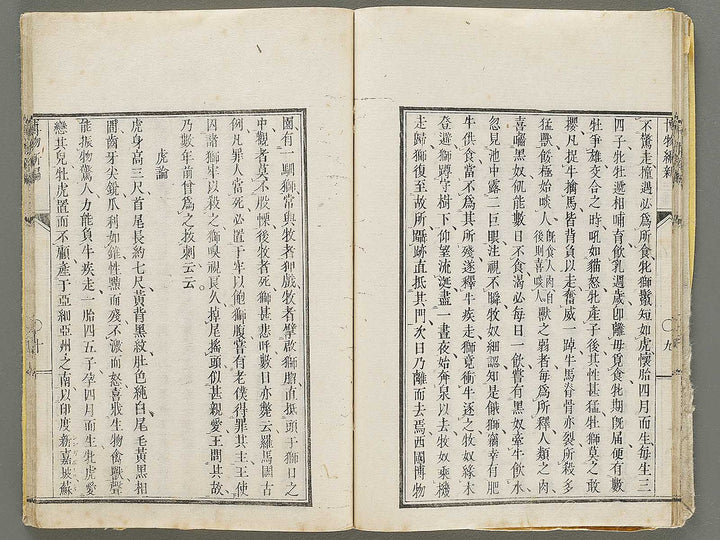 博物新編
不驚走撞遇必爲所食牝獅鬣短如虎懷胎四月而生每生三
四子牝牡遞相哺育飲乳週歲卽離毋覓食牝期旣屆便有數
牡爭雄交合之時吼如貓怒牝產子後其性甚猛牡獅莫之敢
攖凡捉牛擒馬皆背負以走奮威一踔牛馬脊骨亦裂所殺多
猛獸餒極始啖人旣食人肉自後則喜啖人獸之弱者每爲所釋人類之肉
喜囓黑奴飢能數日不食渴必每日一飲嘗有黑奴牽牛飲水
忽見池中露二巨眼注視不瞬牧奴細認知是餓獅竊幸有肥
牛供食當不爲其所殘遂釋牛疾走獅竟衝牛逐之牧奴緣木
登避獅蹲守樹下仰望流涎盡一晝夜始奔泉以去牧奴乘機
走歸獅復至故所躡跡直抵其門次日乃離而去焉西國博物
九
園有一馴獅常與牧者狎戲牧者擘啟獅脗直抵頭于獅口之
中觀者莫不股慄後牧者死獅甚悲呼數日亦斃云羅馬國古
例凡罪人當死必置于牢以飽獅腹嘗有老僕得罪其主王使
因諸獅牢以殺之獅嗅視良久掉尾搖頭似甚親愛王問其故
乃數年前曾爲之拔刺云云
虎論
虎身高三尺首尾長約七尺黃背黑紋肚色純白尾毛黃黑相
間齒牙尖銳瓜利如錐性黠而殘不激而怒喜戕生物禽獸聲
能振物驚人力能負牛疾走一胎四五子孕四月而生牝虎愛
戀其兒牡虎置而不顧產于亞細亞州之南以印度新嘉坡蘇
博物新編
十